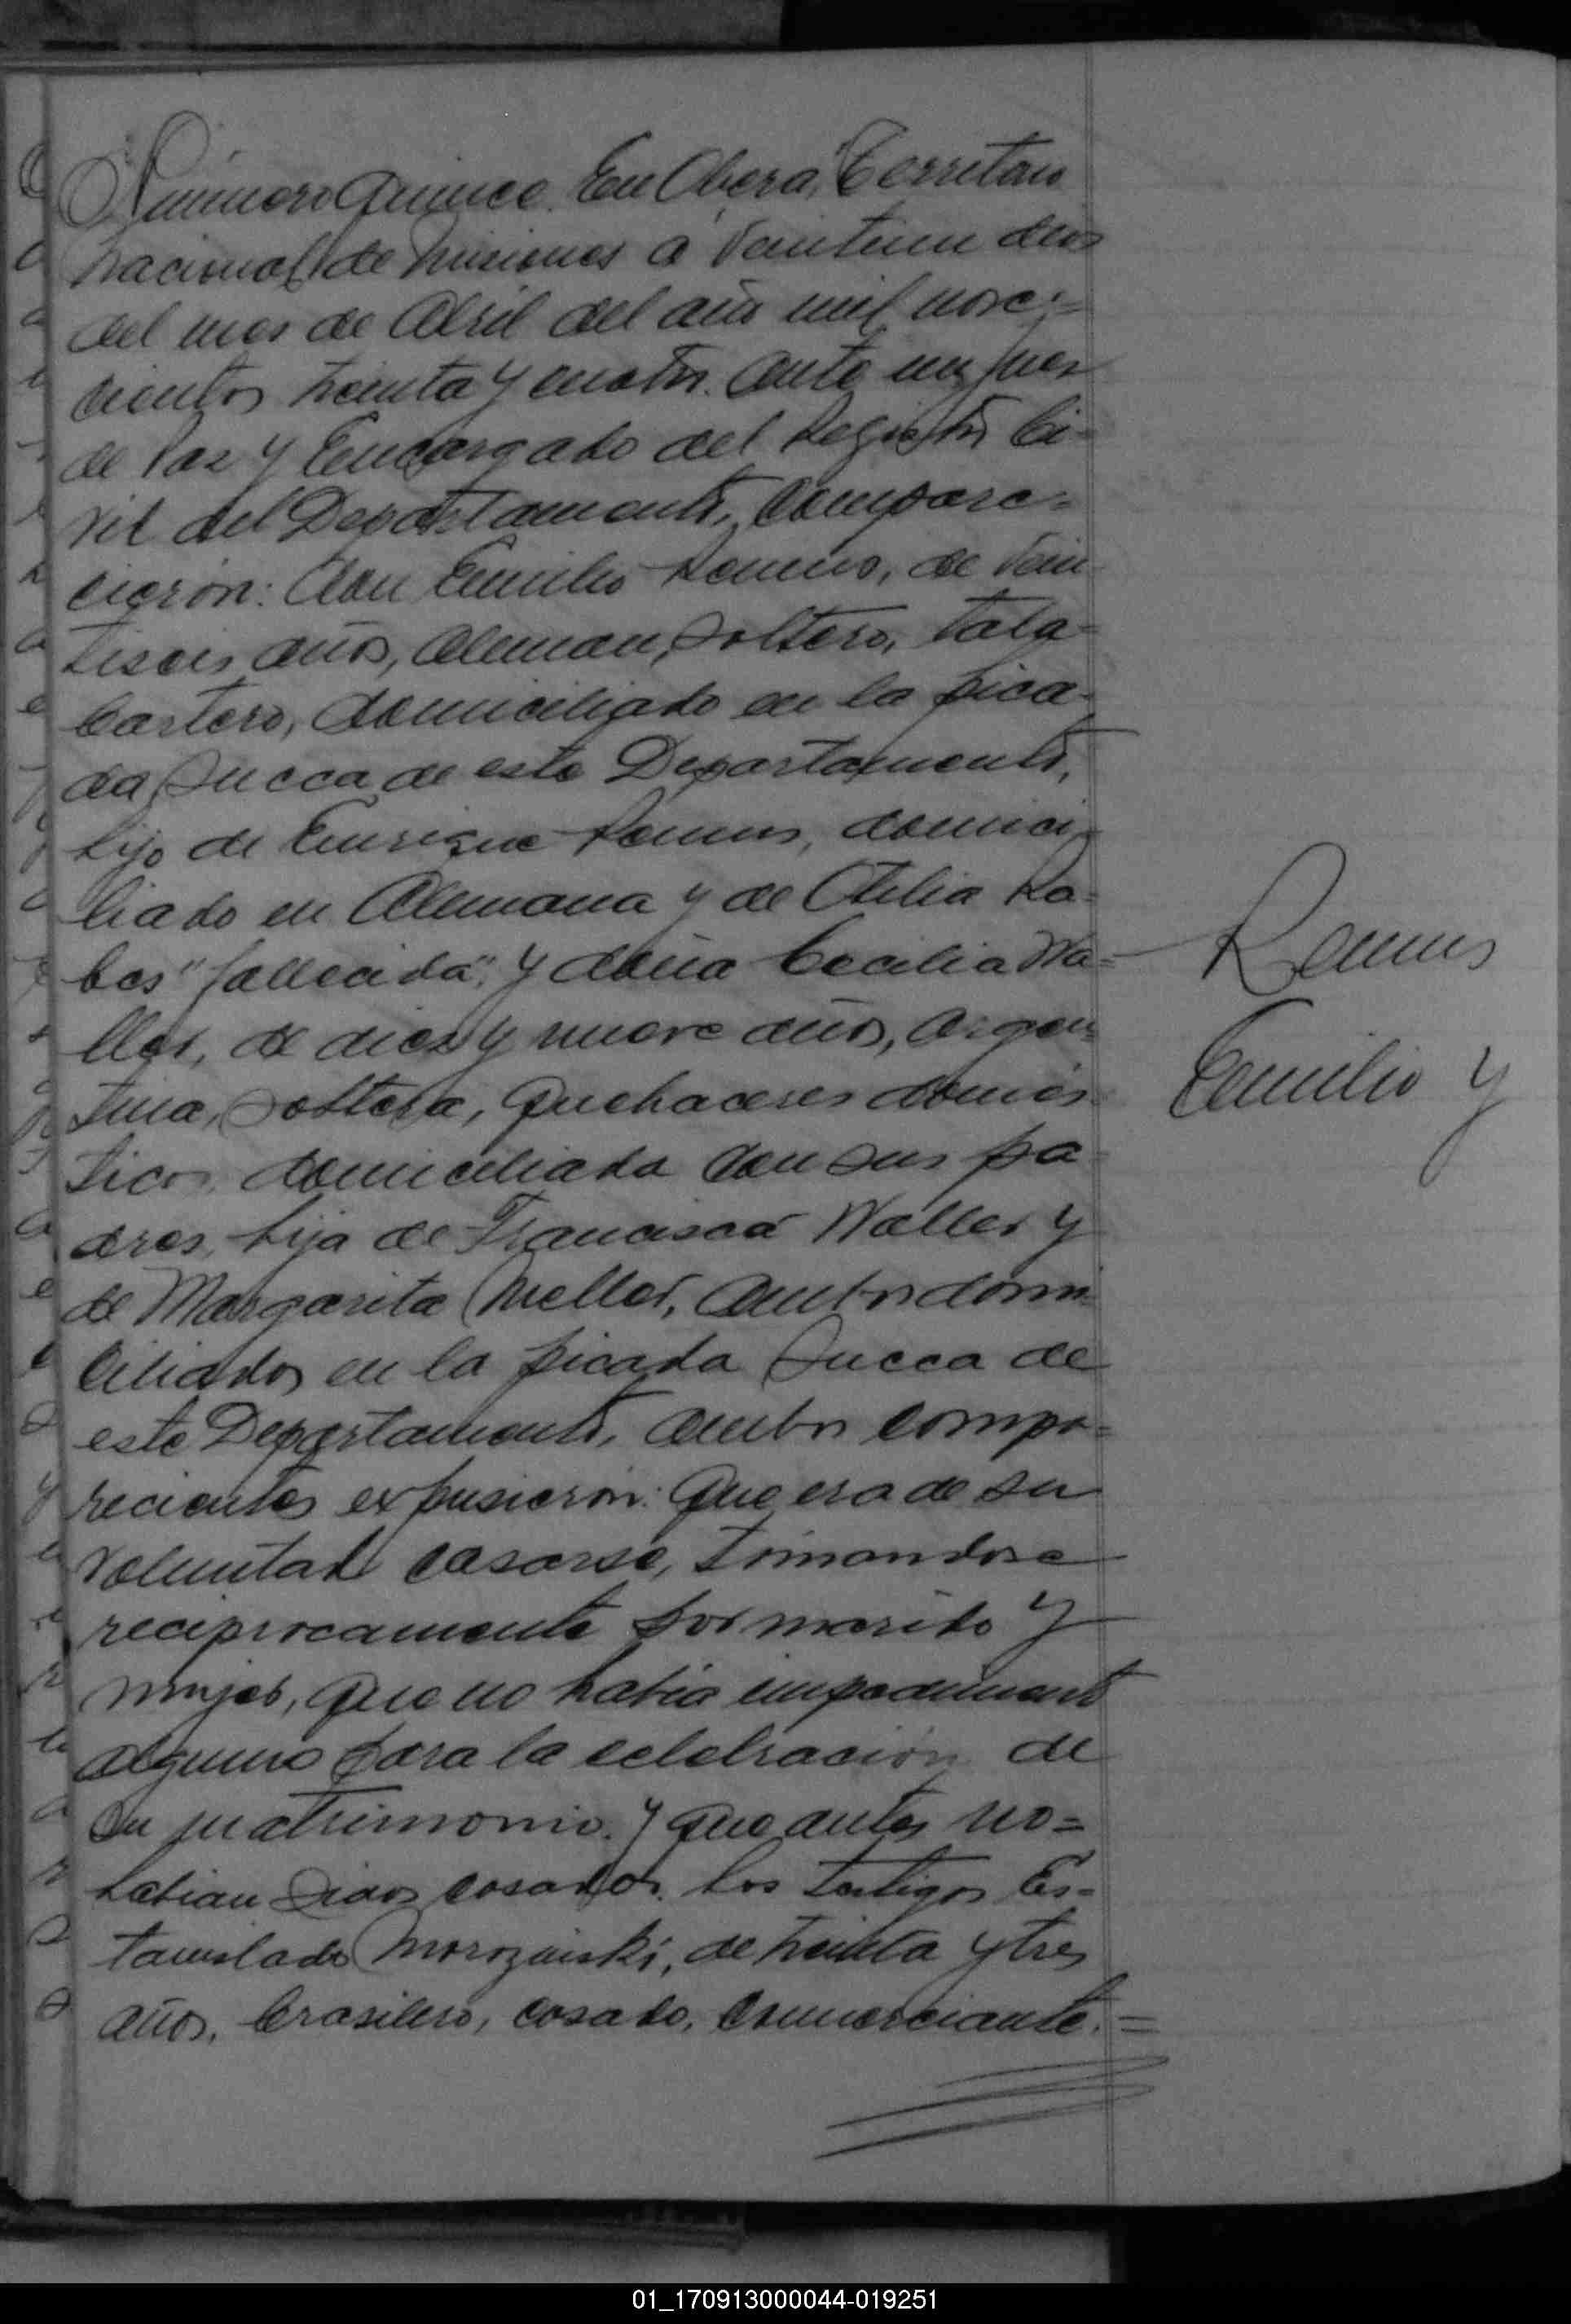 Número Quince. En Obera, Territorio
nacional de Misiones a Veintiun dias
del mes de Abril del año mil nove=
cientos treinta y cuatro. Ante mi, Juez
de Paz y Encargado del Registro Ci=
vil del Departamento, compare=
cieron: don Emilio Ramus, de Vein
tiseis años, Aleman, soltero, tala=
bartero, domiciliado en la pica=
da Sueca de este Departamento,
hijo de Enrique Ramus, domici=
liado en Alemana y de Otilia Ra=
bes "fallecida", y doña Cecilia Wa=
ller, de diez y nueve años, argen=
tina, soltera, quehaceres domés
ticos domiciliada con sus pa
dres, hija de Francisco Waller y
de Margarita Meller, ambos domi=
ciliados en la picada Sueca de
este Departamento, ambos compa=
recientes expusieron: Que era de su
voluntad casarse, tomandose
reciprocamente por marido y
mujer, que no habia impedimento
alguno para la celebracion de
su matrimonio. y que antes no=
habian sidos casados. Los testigos Es=
tanislado Morozinski, de treinta y tres
años, brasilero, casado, comerciante.=
Ramus
Emilio y